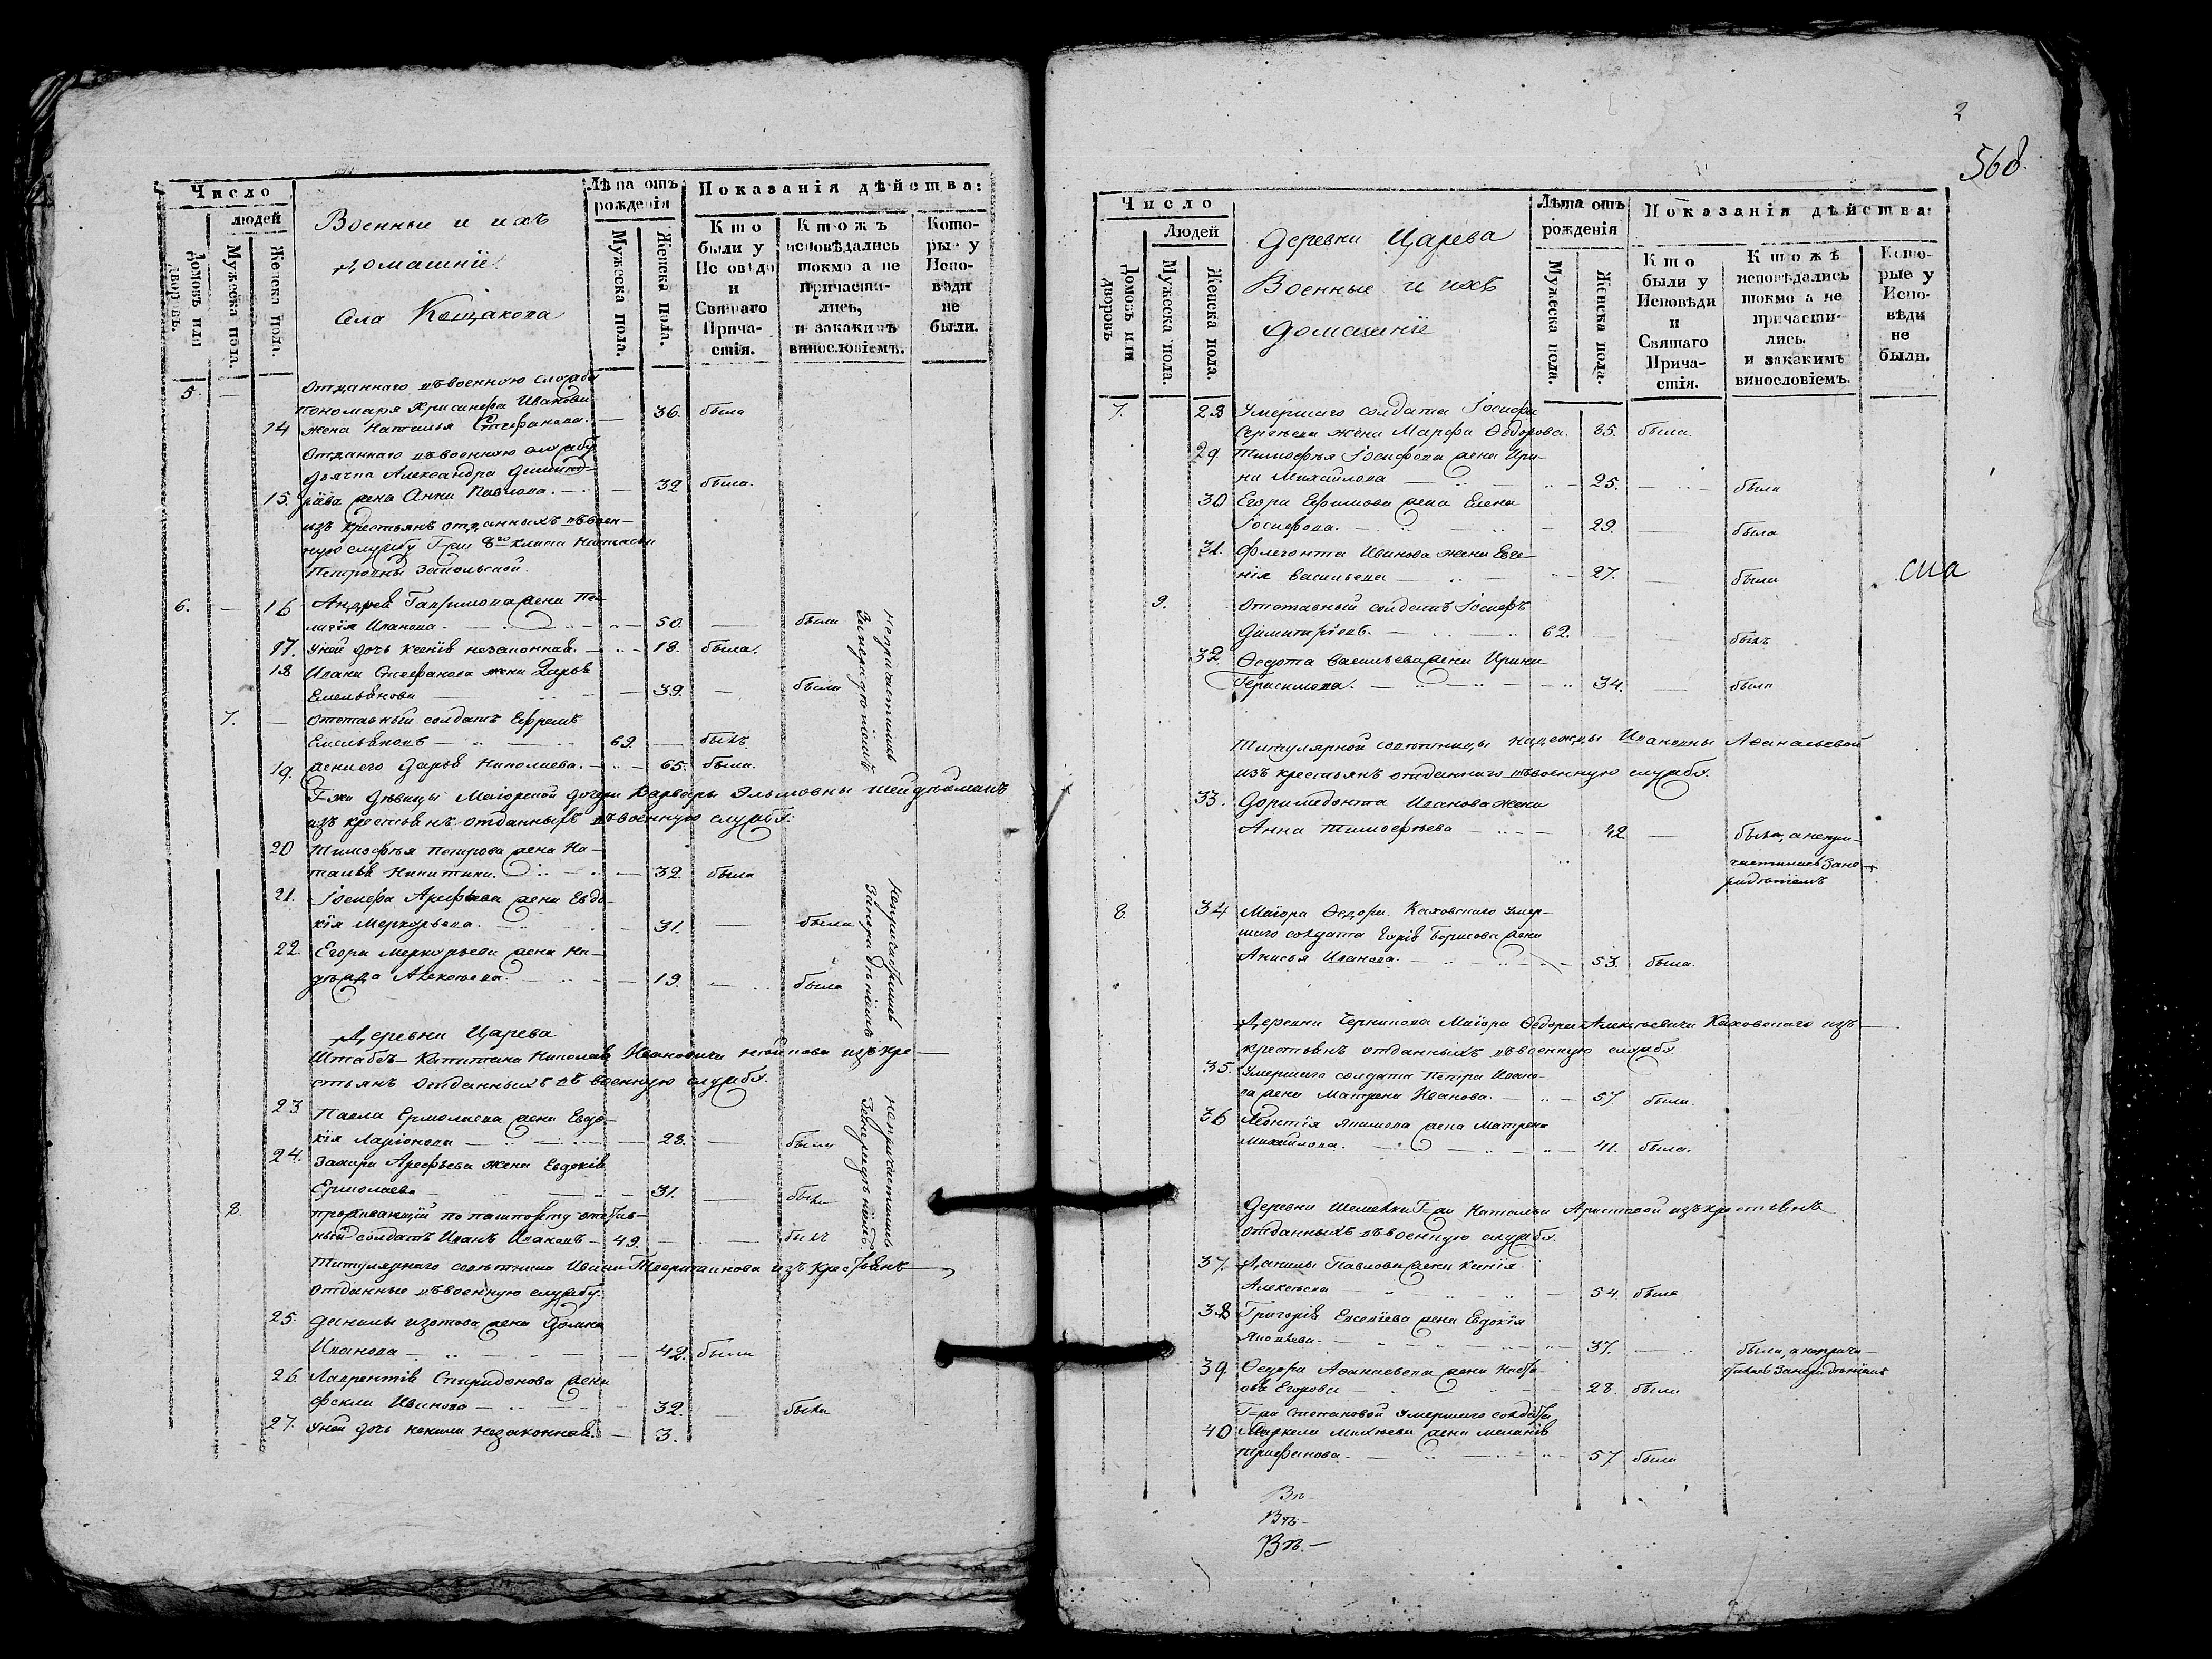 Число
людей
Домовъ или дворовъ.
Мужеска пола.
Женска пола.
Военные и ихъ
домашніе.
Села Кощакова
Лѣта отъ рожденія
Мужеска пола.
Женска пола.
Показанія дѣйства:
Кто были у Исповѣди и Святаго Причастія.
Кто жъ исповѣдались токмо а не причастились, и за какимъ винословіемъ.
Которые у Исповѣди не были.
5. — Отданнаго въ военную службу
пономаря Хрисанфа Иванова
14 жена Наталья Стефанова. — 36. была
Отданнаго въ военную службу
дьячка Александра Димит-
15. ріева жена Анна Павлова. — 32 была.
изъ крестьянъ отданныхъ въ воен-
ную службу Г-жи 8го класса Натальи
Петровны Запольской.
6. — 16 Андрея Гаврилова жена Пе-
лагія Иванова. — 50. — была
17. У ней дочь Ксенія незаконная. — 18. была.
18 Ивана Стефанова жена Дарья
Емельянова — 39. — была
7. — Отставный солдатъ Ефремъ
Емельяновъ — 69. — былъ
19. жена его Дарья Николаева. — 65. была.
не причастились
за нерадѣніемъ
Г-жи дѣвицы Маіорской дочери Варвары
изъ крестьянъ отданныхъ въ военную службу:
20 Тимофея Петрова жена На-
талья Никитина. — 32. была
21. Іосифа Арефьева жена Евдо-
кія Меркурьева. — 31. — была
22. Егора Меркурьева жена На-
дежда Алексеева. — 19. — была
не причастились
за нерадѣніемъ
Деревни Царева
Штабсъ-Капитана Николая Ивановича изъ кре-
стьянъ отданныхъ въ военную службу.
23 Павла Ермолаева жена Евдо-
кія Ларіонова — 28. — была
24. Захара Арефьева жена Евдокія
Ермолаева — 31. — была
8. проживающій по пашпорту отстав-
ный солдатъ Иванъ Иваковъ — 49. — былъ
не причастились
за нерадѣніемъ.
Титулярнаго совѣтника изъ крестьянъ
отданные въ военную службу.
25. Данилы Изотова жена Домна
Иванова — 42. была
26. Лаврентія Спиридонова жена
Фекла Иванова — 32. — была
27. У ней дочь незаконная. — 3.
2
568.
Число
Людей
Домовъ или дворовъ
Мужеска пола.
Женска пола.
Деревни Царева
Военные и ихъ
домашніе
Лѣта отъ рожденія
Мужеска пола.
Женска пола.
Показанія дѣйства:
Кто были у Исповѣди и Святаго Причастія.
Кто жъ исповѣдались токмо а не причастились. и за какимъ винословіемъ.
Которые у Исповѣди не были.
7. 28 Умершаго солдата Іосифа
Сергѣева жена Марфа Ѳедорова. 85. была.
29 Тимофея Іосифова жена Ири-
на Михайлова — 25. — была
30 Егора Ефимова жена Елена
Іосифова. — 29. — была
31. Флегонта Иванова жена Евге-
нія Васильева — 27. — была
9. Отставный солдатъ Іосифъ
Димитріевъ. — 62. — былъ
32. Ѳедота Васильева жена Ирина
Герасимова. — 34. — была
Титулярной совѣтницы Надежды Ивановны Аѳанасьевой
изъ крестьянъ отданнаго въ военную службу.
33. Доримедонта Иванова жена
Анна Тимофеева — 42 — была, а непри-
частилась за не-
радѣніемъ
8. 34 Маіора Ѳедора Каховскаго умер-
шаго солдата Борисова жена
Анисья Иванова. — 53. была.
Деревни Маіора Ѳедора Алексѣевича Каховскаго изъ
крестьянъ отданныхъ въ военную службу.
35. Умершаго солдата Петра Ивано-
ва жена Матрена Иванова. — 57. была.
36 Леонтія Якимова жена Матрена
Михайлова. — 41. была.
Деревни Шемелки Г-жи Натальи изъ крестьянъ
отданныхъ въ военную службу.
37. Данилы Павлова жена Ксенія
Алексѣева — 54. была
38 Григорія Елисѣева жена Евдокія
Яковлева. — 37. — была, а неприча-
стилась за нерадѣніемъ
39. Ѳедора Аѳанасьева жена
Егорова — 28. была
Г-жи Степановой умершаго солдата
40 Маркела жена Меланія
— 57 была
Въ-
Въ-
Въ.-